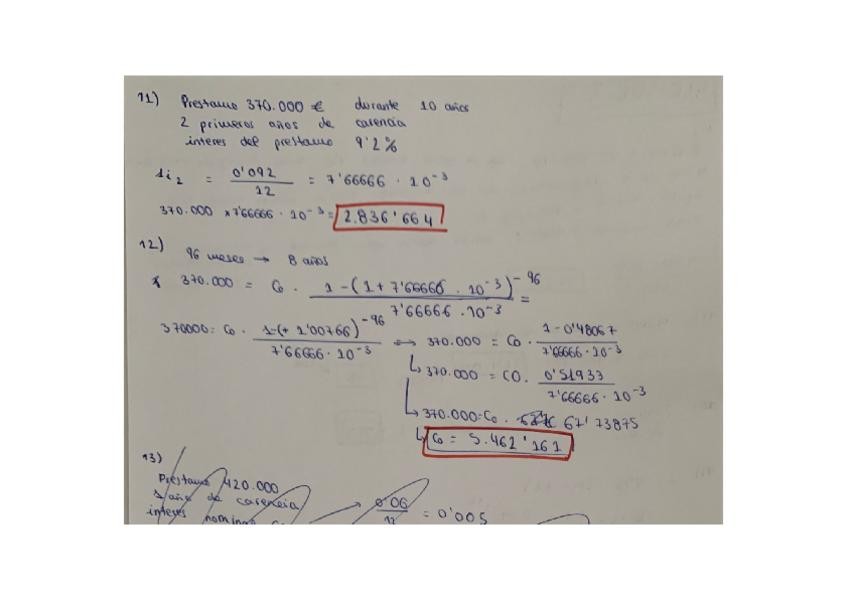 11) Prestamo 370.000 € durante 10 años
2 primeros años de carencia
interes del prestamo 9'2%
1i₂ = 0'092 / 12 = 7'66666 · 10⁻³
370.000 x 7'66666 · 10⁻³ = 2.836'664
12)
96 meses → 8 años
370.000 = C₀ · 1-(1+7'66666 · 10⁻³)⁻⁹⁶ / 7'66666 · 10⁻³ =
370000 = C₀ · 1-(+ 1'00766)⁻⁹⁶ / 7'66666 · 10⁻³ ↔ 370.000 = C₀ · 1-0'48067 / 7'66666 · 10⁻³
↳ 370.000 = CO. 0'51933 / 7'66666 · 10⁻³
↳ 370.000 = C₀ · 67'73875
↳ C₀ = 5.462'161
13)
Prestamo 420.000
1 año de carencia
interes nomina
→ 0'06 / 12 = 0'005